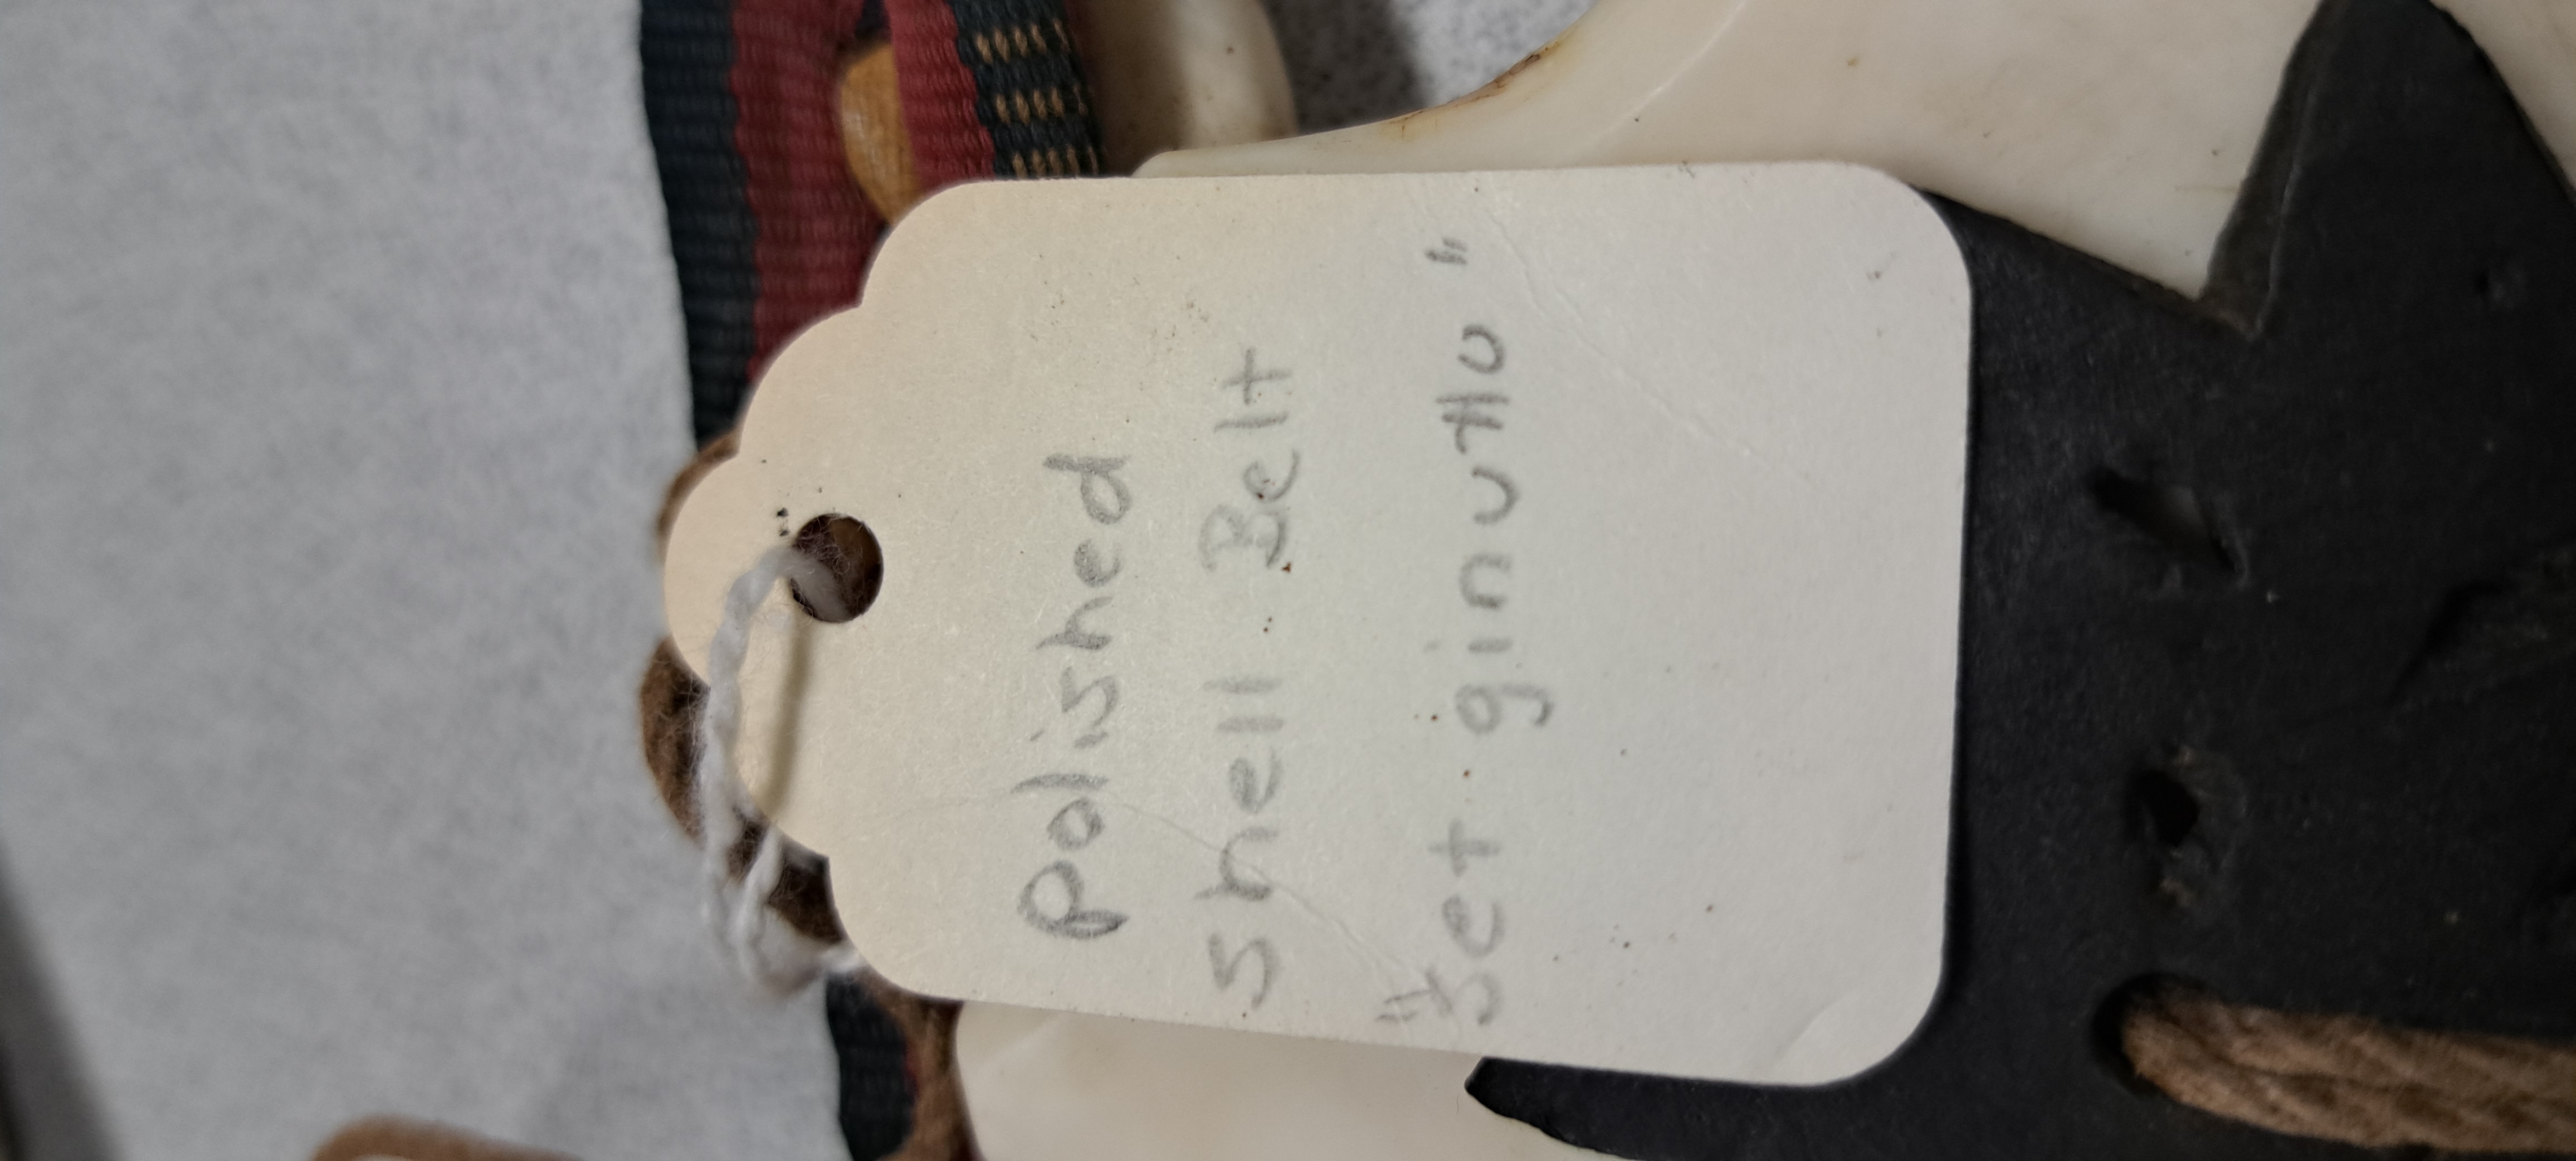 polished
shell Belt
"Set ginuttu"